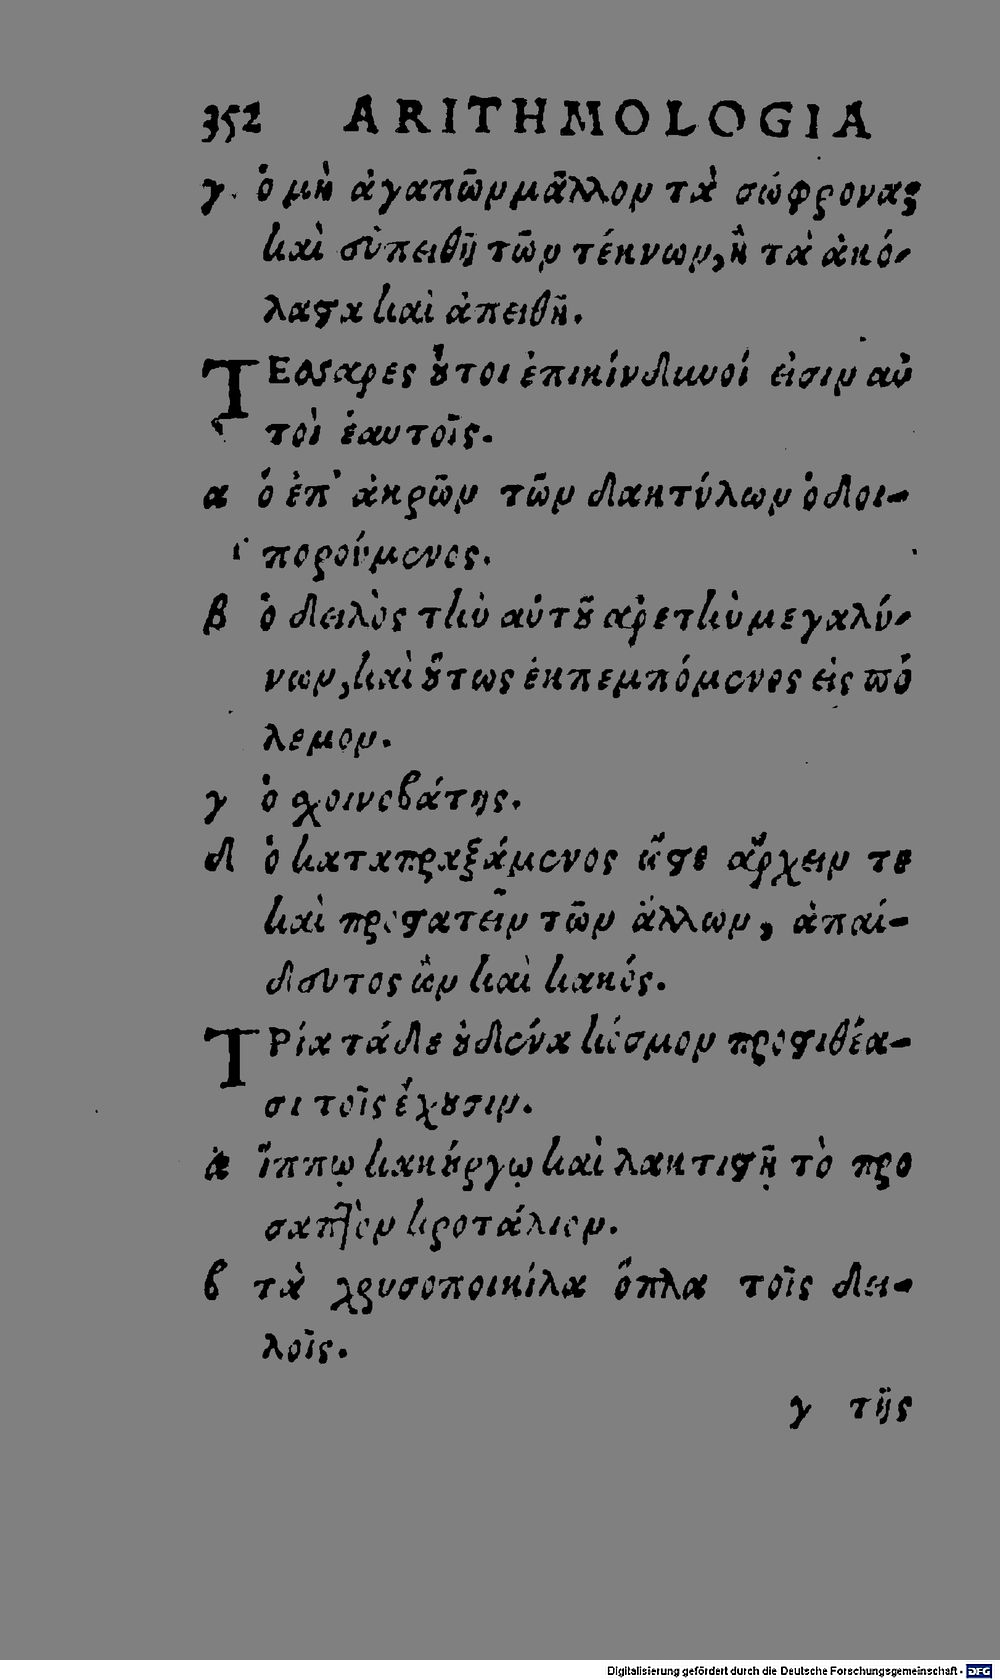 352 ARITHMOLOGIA
γ. ὁ μὴ ἀγαπῶν μᾶλλον τὰ σώφρονας
καὶ εὐπειθῆ τῶν τέκνων, ἢ τὰ ἀκό-
λαστα καὶ ἀπειθῆ.
ΤΕσσαρες οὗτοι ἐπικίνδυνοί εἰσιν αὐ
τοὶ ἑαυτοῖς.
α ὁ ἐπ' ἀκρῶν τῶν δακτύλων ὁδοι-
πορούμενος.
β ὁ δειλὸς τὴν αὑτοῦ ἀρετὴν μεγαλύ-
νων, καὶ οὕτως ἐκπεμπόμενος εἰς πό
λεμον.
γ ὁ σχοινοβάτης.
δ ὁ καταπραξάμενος ὥστε ἄρχειν τε
καὶ προστατεῖν τῶν ἄλλων, ἀπαί-
δευτος ὢν καὶ κακός.
ΤΡία τάδε οὐδένα κόσμον προστιθέα-
σι τοῖς ἔχουσιν.
α ἵππῳ κακούργῳ καὶ λακτιστῇ τὸ προ
σαπτὸν κροτάλιον.
β τὰ χρυσοποικίλα ὅπλα τοῖς δει-
λοῖς.
γ τῆς
Digitalisierung gefördert durch die Deutsche Forschungsgemeinschaft - DFG